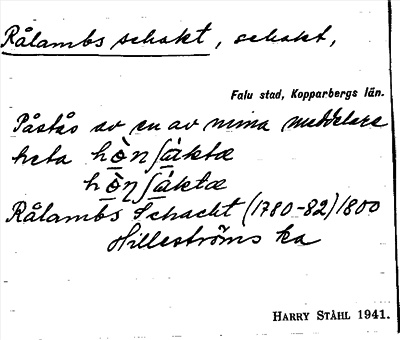 Rålambs schakt, schakt,
Falu stad, Kopparbergs län.
Påstås av en av mina meddelare
heta hò̱nʃa̱ktæ
hò̱ŋʃa̱ktæ
Rålambs Schacht (1780-82) 1800
Hilleströms ka
HARRY STÅHL 1941.